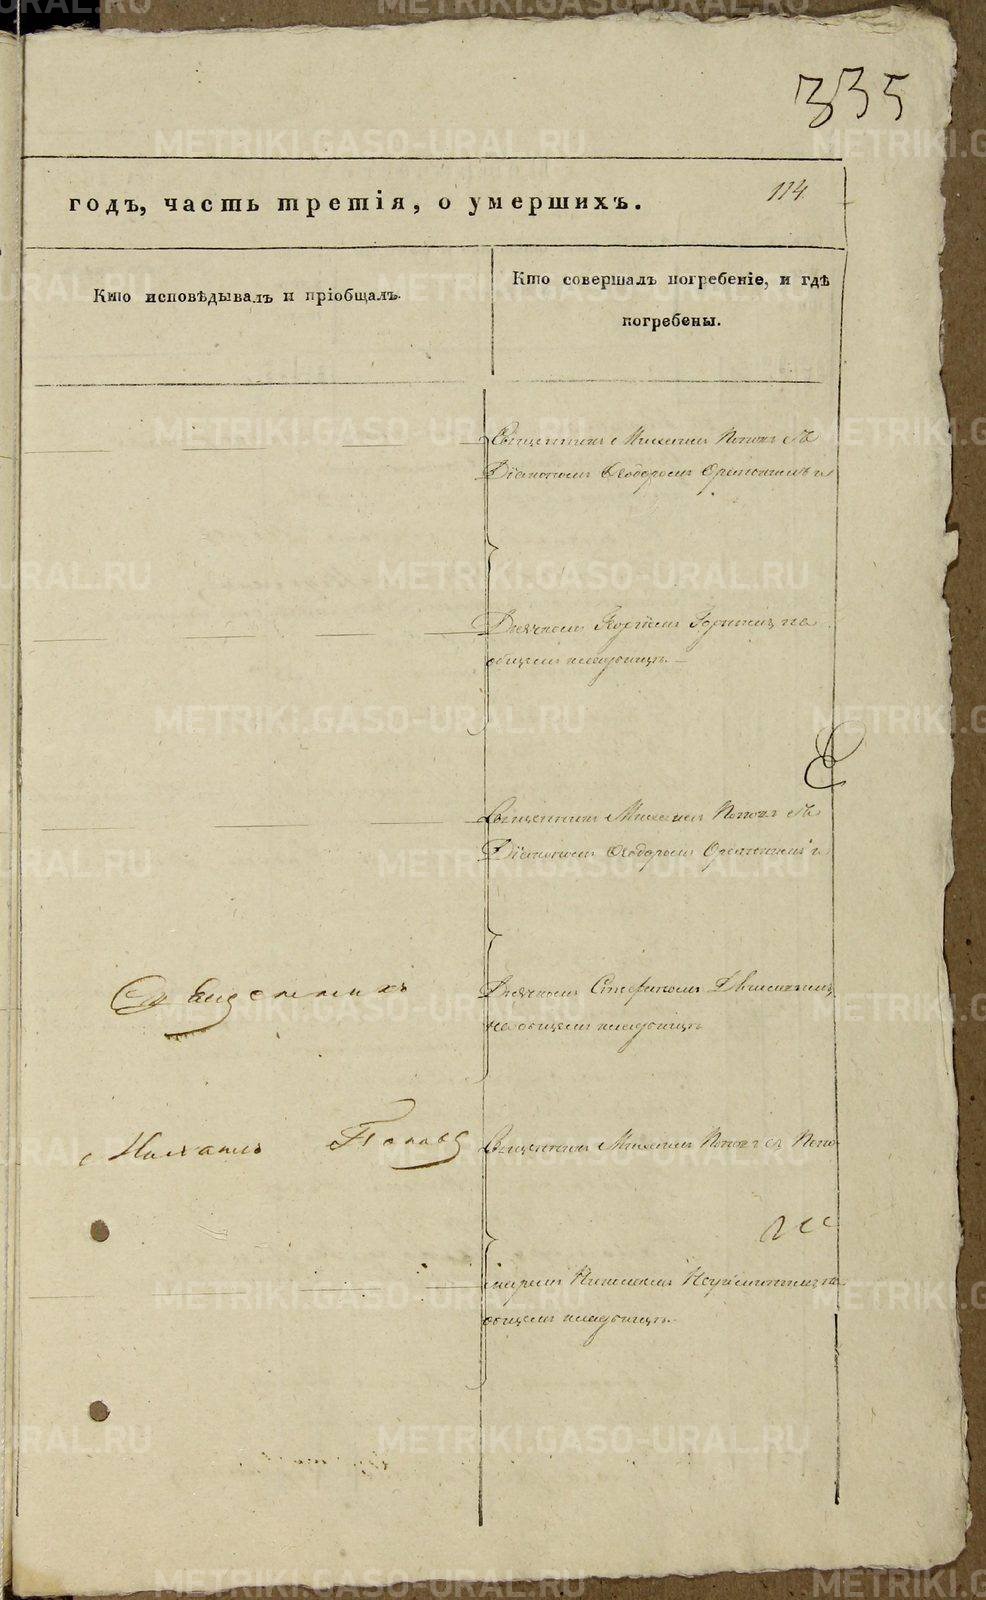 335
годъ, часть третія, о умершихъ.
114
Кто исповѣдывалъ и пріобщалъ.
Кто совершалъ погребеніе, и гдѣ
погребены.
Священникъ Михаилъ Поповъ съ
Діакономъ Ѳеодоромъ и
Дьячкомъ Георгіемъ на
общемъ кладбищѣ.
Священникъ Михаилъ Поповъ съ
Діакономъ Ѳеодоромъ и
Священникъ
Дьячкомъ Стефаномъ
на общемъ кладбищѣ
Михаилъ Поповъ
Священникъ Михаилъ Поповъ съ Поно-
маремъ на
общемъ кладбищѣ.
METRIKI.GASO-URAL.RU